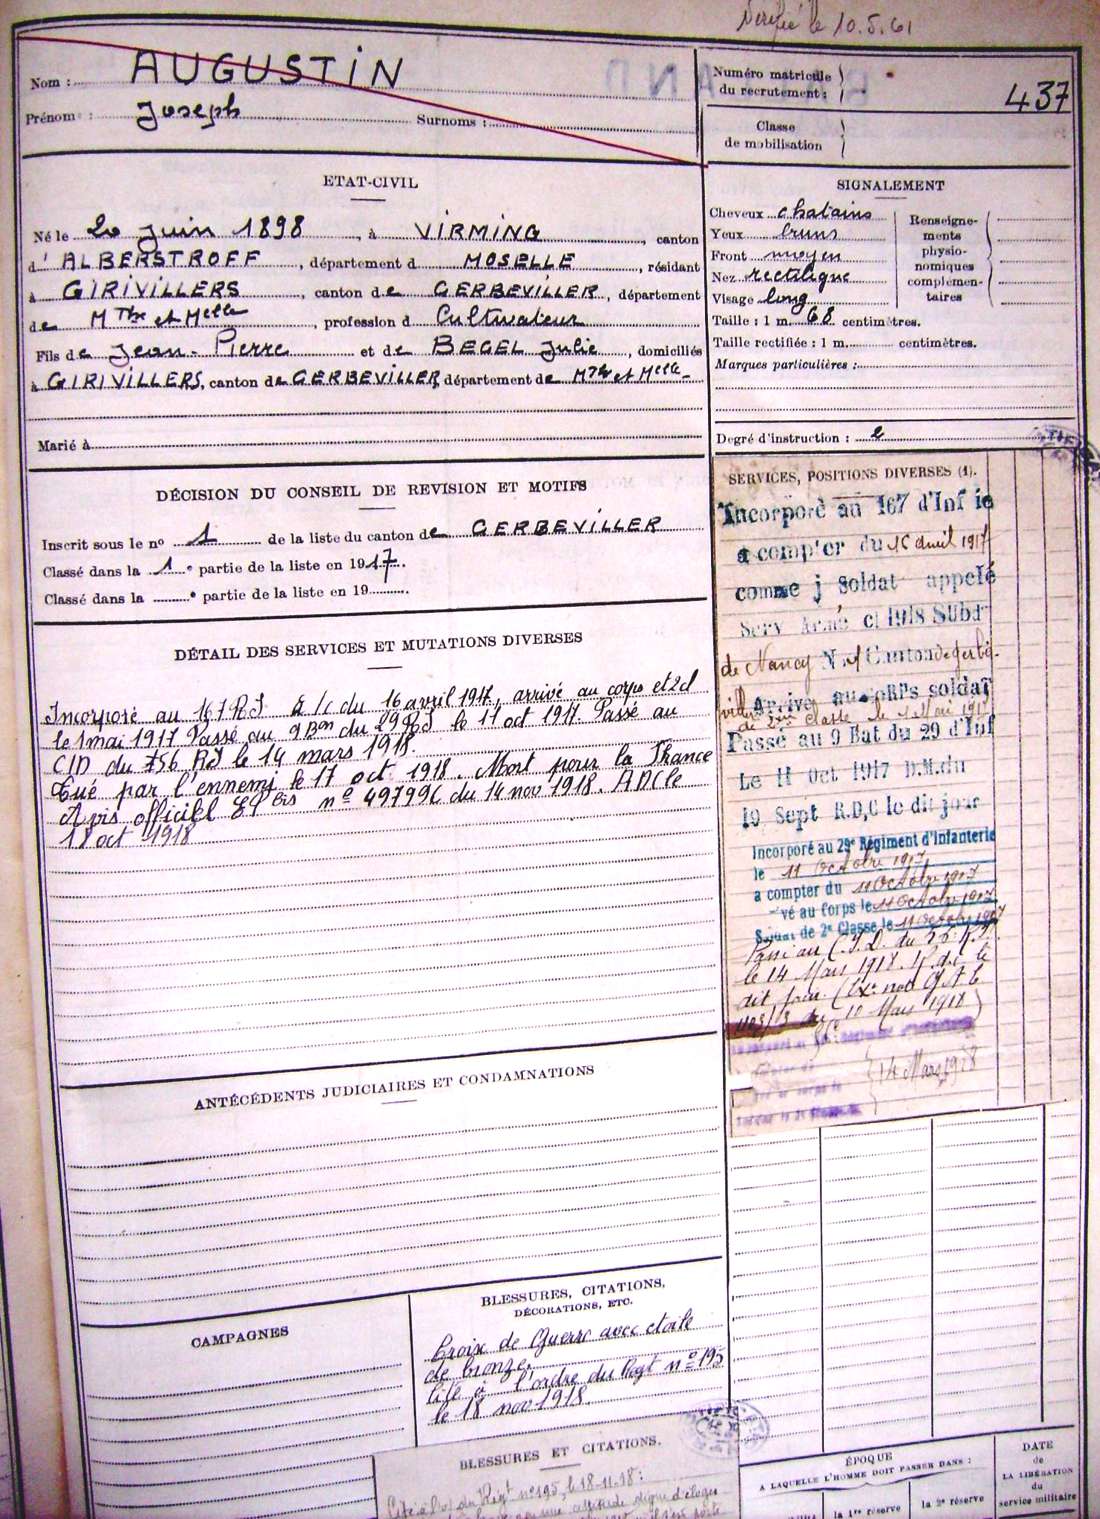 Vérifié le 10.5.61
Nom : AUGUSTIN
Prénom : Joseph Surnoms :
Numéro matricule
du recrutement : 437
Classe
de mobilisation
ETAT-CIVIL
Né le 20 juin 1898, à VIRMING, canton
d'ALBERSTROFF, département d MOSELLE, résidant
à GIRIVILLERS, canton de GERBEVILLER, département
de Mthe et Melle, profession d Cultivateur
Fils de Jean-Pierre et de BEGEL Julie, domiciliés
à GIRIVILLERS, canton de GERBEVILLER, département de Mthe et Melle
Marié à
SIGNALEMENT
Cheveux chatains
Yeux bruns
Front moyen
Nez rectiligne
Visage long
Renseigne-
ments
physio-
nomiques
complémen-
taires
Taille : 1 m. 68 centimètres.
Taille rectifiée : 1 m. centimètres.
Marques particulières :
Degré d'instruction : 2
DÉCISION DU CONSEIL DE REVISION ET MOTIFS
Inscrit sous le no 1 de la liste du canton de GERBEVILLER
Classé dans la 1e partie de la liste en 1917.
Classé dans la e partie de la liste en 19
DÉTAIL DES SERVICES ET MUTATIONS DIVERSES
Incorporé au 167 RI à /c du 16 avril 1917, arrivé au corps et 2cl
le 1 mai 1917 Passé au 9 Bon du 29 RI le 11 oct 1917. Passé au
CID du 356 RI le 14 mars 1918.
Tué par l'ennemi le 17 oct 1918. Mort pour la France
Avis officiel bis no du 14 nov 1918.
18 oct 1918
SERVICES, POSITIONS DIVERSES (1).
Incorporé au 167 d'Inf ie
a compter du 16 avril 1917
comme j Soldat appelé
Serv Armé cl 1918 Subd
de Nancy N 1 Canton de Gerbé-
viller Arrivé au corps soldat
de 2me classe le 1 Mai 1917
Passé au 9 Bat du 29 d'Inf
Le 11 Oct 1917 D.M. du
19 Sept R.D.C le dit jour
Incorporé au 29e Régiment d'Infanterie
le 11 Octobre 1917
a compter du 11 Octobre 1917
vé au Corps le 11 Octobre 1917
Soldat de 2e Classe le 11 Octobre 1917
Passé au C.I.D. du
le 14 Mars 1918. R.d.c le
dit jour
10 Mars 1918)
14 Mars 1918
ANTÉCÉDENTS JUDICIAIRES ET CONDAMNATIONS
CAMPAGNES
BLESSURES, CITATIONS,
DÉCORATIONS, ETC.
Croix de Guerre avec etoile
de bronze.
Cité à l'ordre du Regt no 195
le 18 nov 1918.
BLESSURES ET CITATIONS.
Cité à l'o/ du Régt no 195, le 18-11-18 :
attitude digne d'éloges
ÉPOQUE
A LAQUELLE L'HOMME DOIT PASSER DANS :
la 1re réserve
la 2e réserve
DATE
de
LA LIBÉRATION
du
service militaire